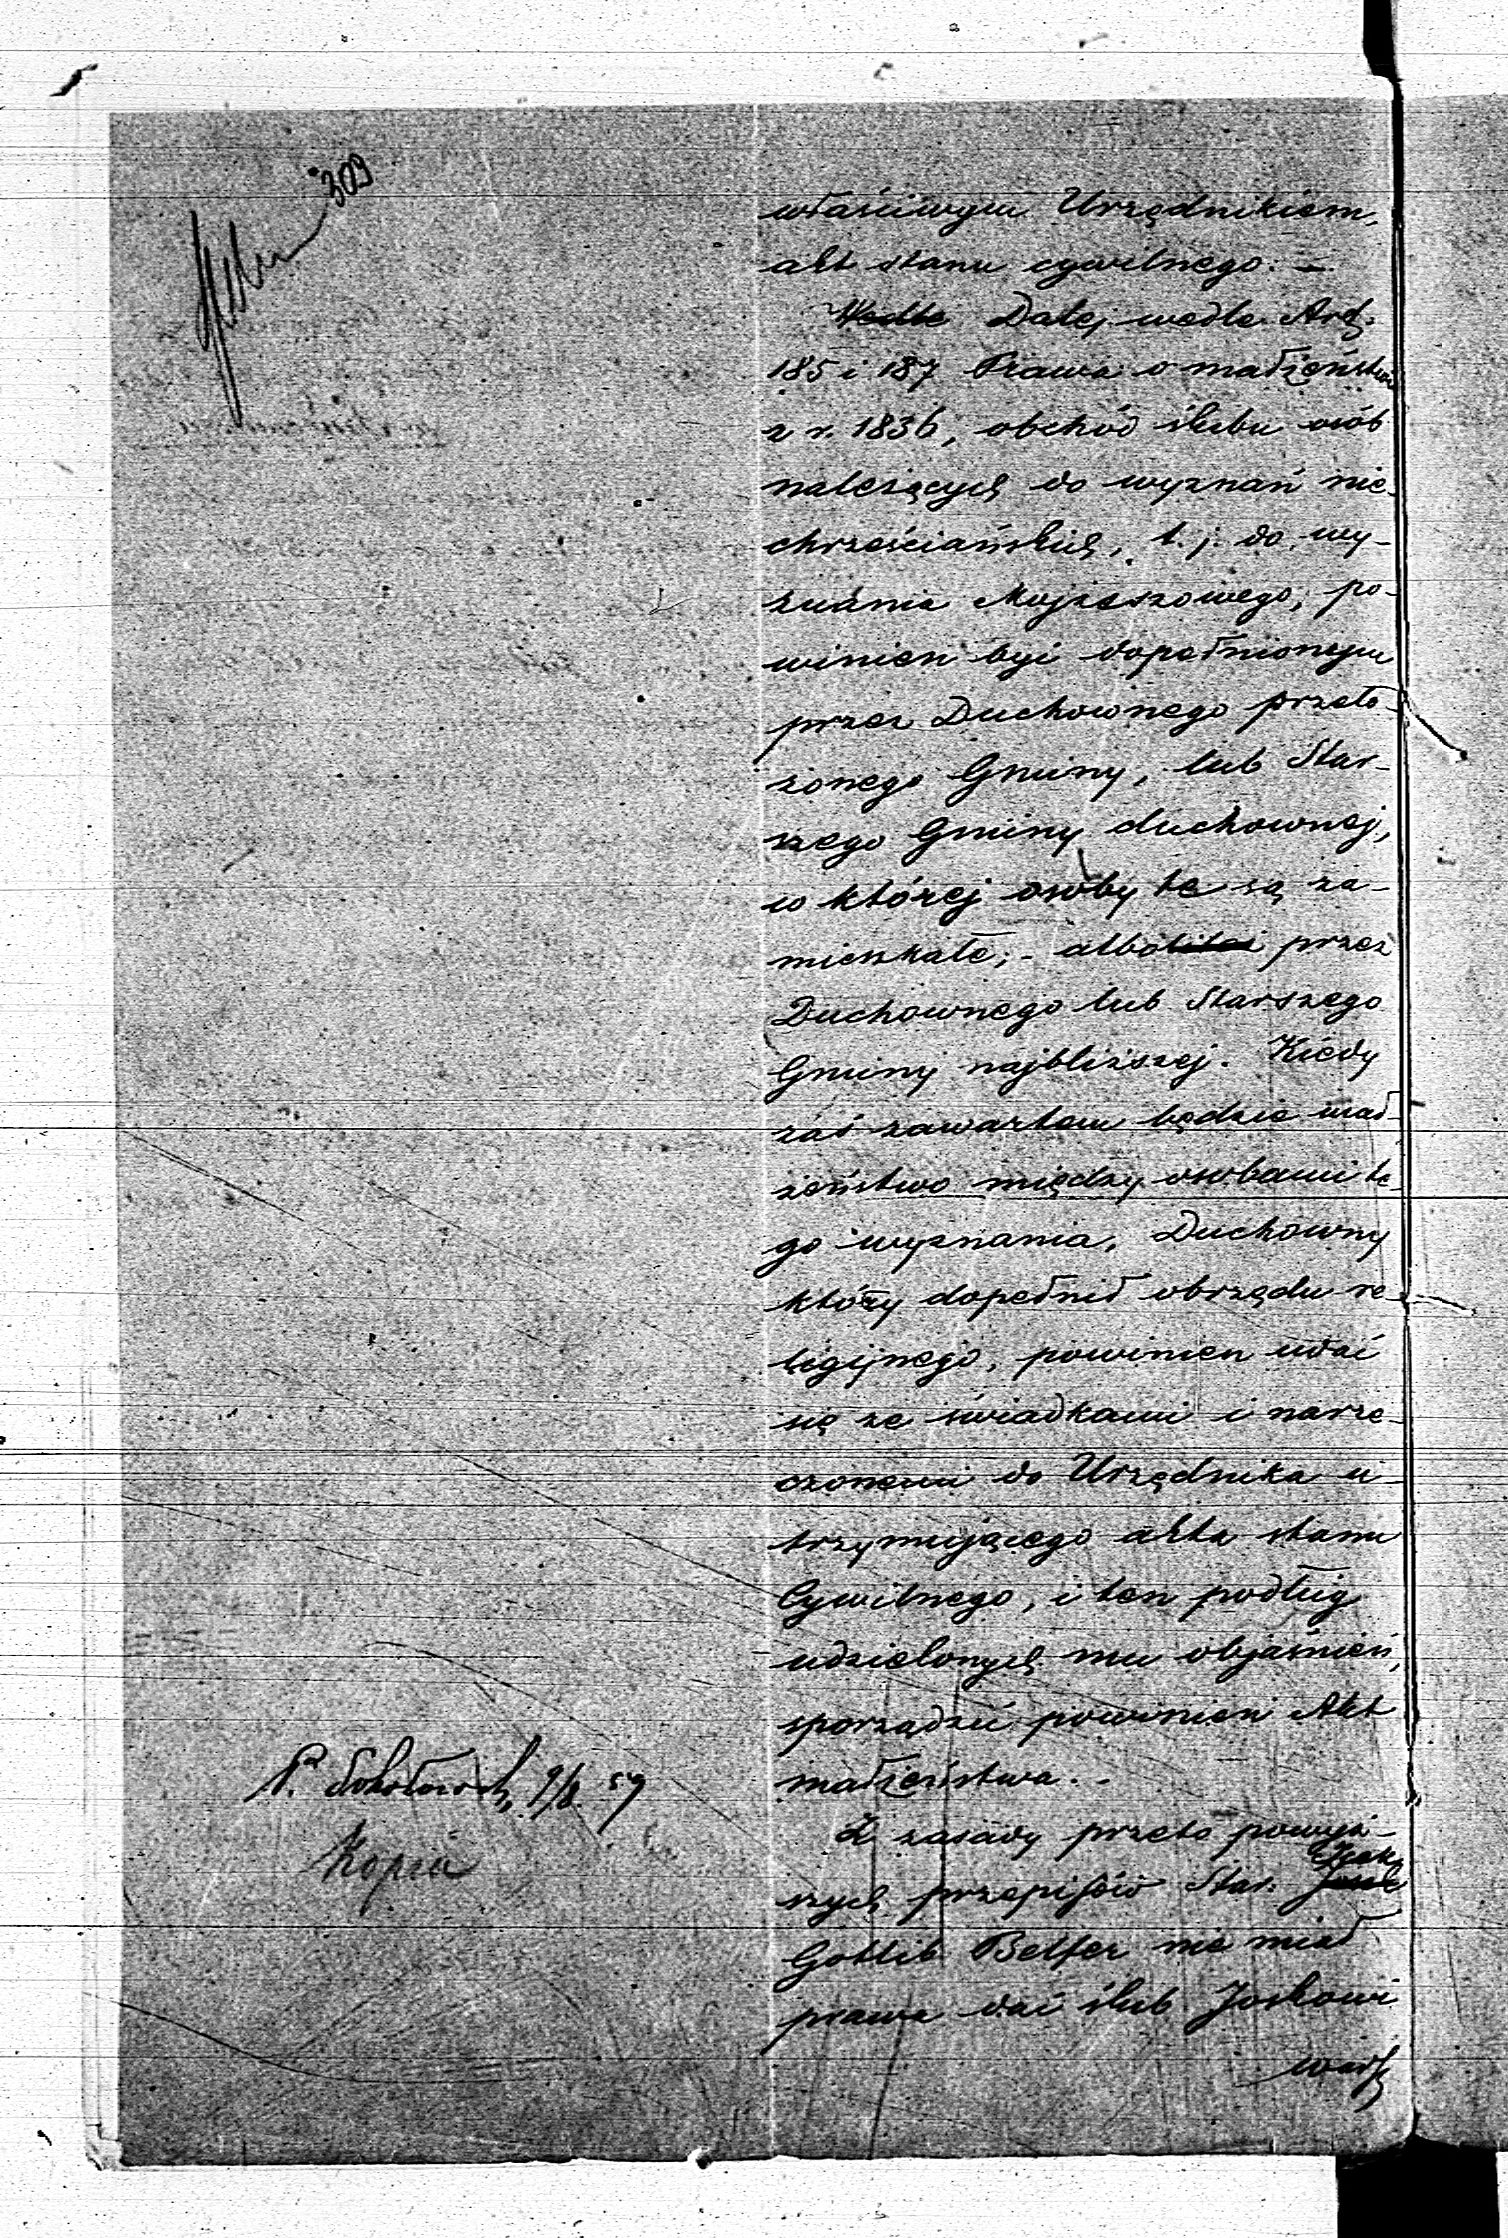 309
właściwym Urzędnikiem,
akt stanu cywilnego. –
Wedle Dalej wedle Art.
185 i 187 Prawa o małżeństwie
z r. 1836, obchód ślubu osób
należących do wyznań nie-
chrześciańskich, t. j. do wy-
znania Mojżeszowego, po-
winien być dopełnionym
przez Duchownego przeło-
żonego Gminy, lub Star-
szego Gminy duchownej,
w której osoby te są za-
mieszkałe; - albo przez
Duchownego lub Starszego
Gminy najbliższej. Kiedy
zaś zawartem będzie mał-
żeństwo między osobami te-
go wyznania, Duchowny
który dopełnił obrzędu re-
ligijnego, powinien udać
się ze świadkami i narze-
czonemi do Urzędnika u-
trzymującego akta stanu
Cywilnego, i ten podług
udzielonych mu objaśnień,
sporządzić powinien Akt
małżeństwa. -
Z zasady przeto powyż-
szych przepisów Star. Icek
Gotlib Belfer nie miał
prawa dać ślub Joskowi
9/8 59
Kopia